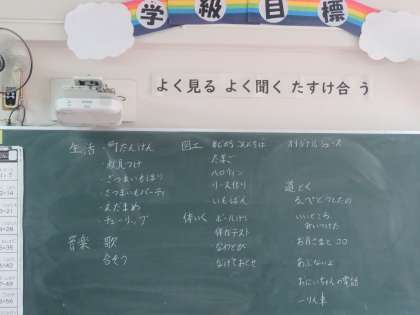 学級目標
よく見る よく聞く たすけ合う
生活 ・町たんけん
・秋見つけ
・さつまいもほり
・さつまいもパーティ
・えだまめ
・チューリップ
音楽 歌
合そう
図工
たまご
ハロウィン
リース作り
いもはん
体いく ボールけり
体力テスト
なわとび
オリジナルジュース
道とく
いいところ
みいつけた
お月さまとコロ
あぶないよ
おにいちゃんの電話
一りん車